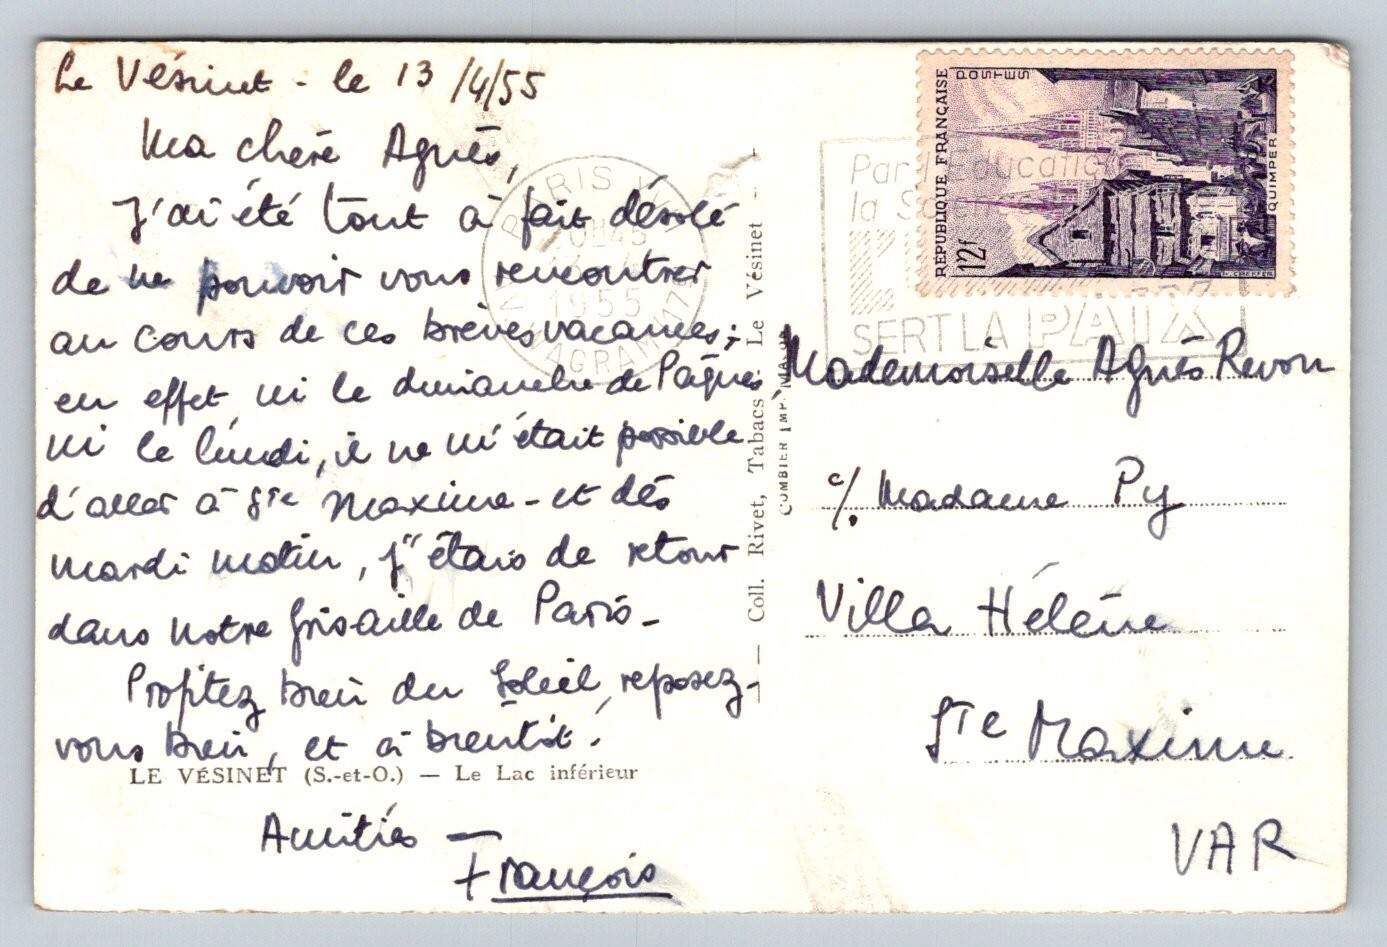 Le Vésinet - le 13/4/55
Ma chère Agnès,
J'ai été tout à fait désolé
de ne pouvoir vous rencontrer
au cours de ces brèves vacances ;
en effet, ni le dimanche de Pâques
ni le lundi, il ne m'était possible
d'aller à Ste Maxime - et dès
mardi matin, j'étais de retour
dans notre grisaille de Paris -
Profitez bien du soleil, reposez-
vous bien, et à bientôt.
LE VÉSINET (S.-et-O.) — Le Lac inférieur
Amitiés —
François
— Coll. Rivet, Tabacs - Le Vésinet -
COMBIER IMP. MACON
PARIS XVII
1955
WAGRAM (17e)
Par l'Education
SERT LA PAIX
RÉPUBLIQUE FRANÇAISE
POSTES
12f
QUIMPER
Mademoiselle Agnès Revon
c/. Madame Py
Villa Hélène
Ste Maxime
VAR